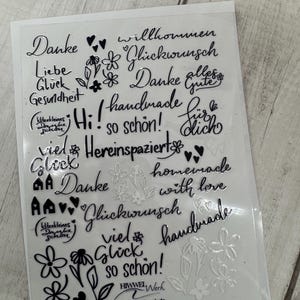 willkommen
Danke
Glückwunsch
Liebe
Glück
Gesundheit
Danke
alles
Gute
handmade
Hi!
so schön!
für
dich
viel
Glück
Hereinspaziert
homemade
with love
Danke
Glückwunsch
handmade
viel
Glück
so schön!